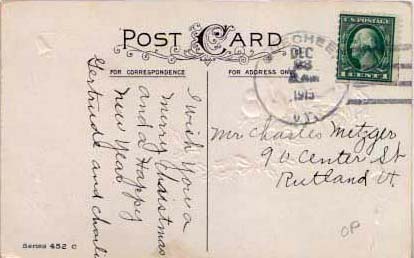 POST CARD
FOR CORRESPONDENCE
FOR ADDRESS ONLY
I wish you a
merry Christmas
and a Happy
New Year
Gertrude and Charlie
DEC
1915
VT.
U.S. POSTAGE
1 CENT 1
Mr Charles Metzger
90 Center St
Rutland Vt.
OP
Series 452 C